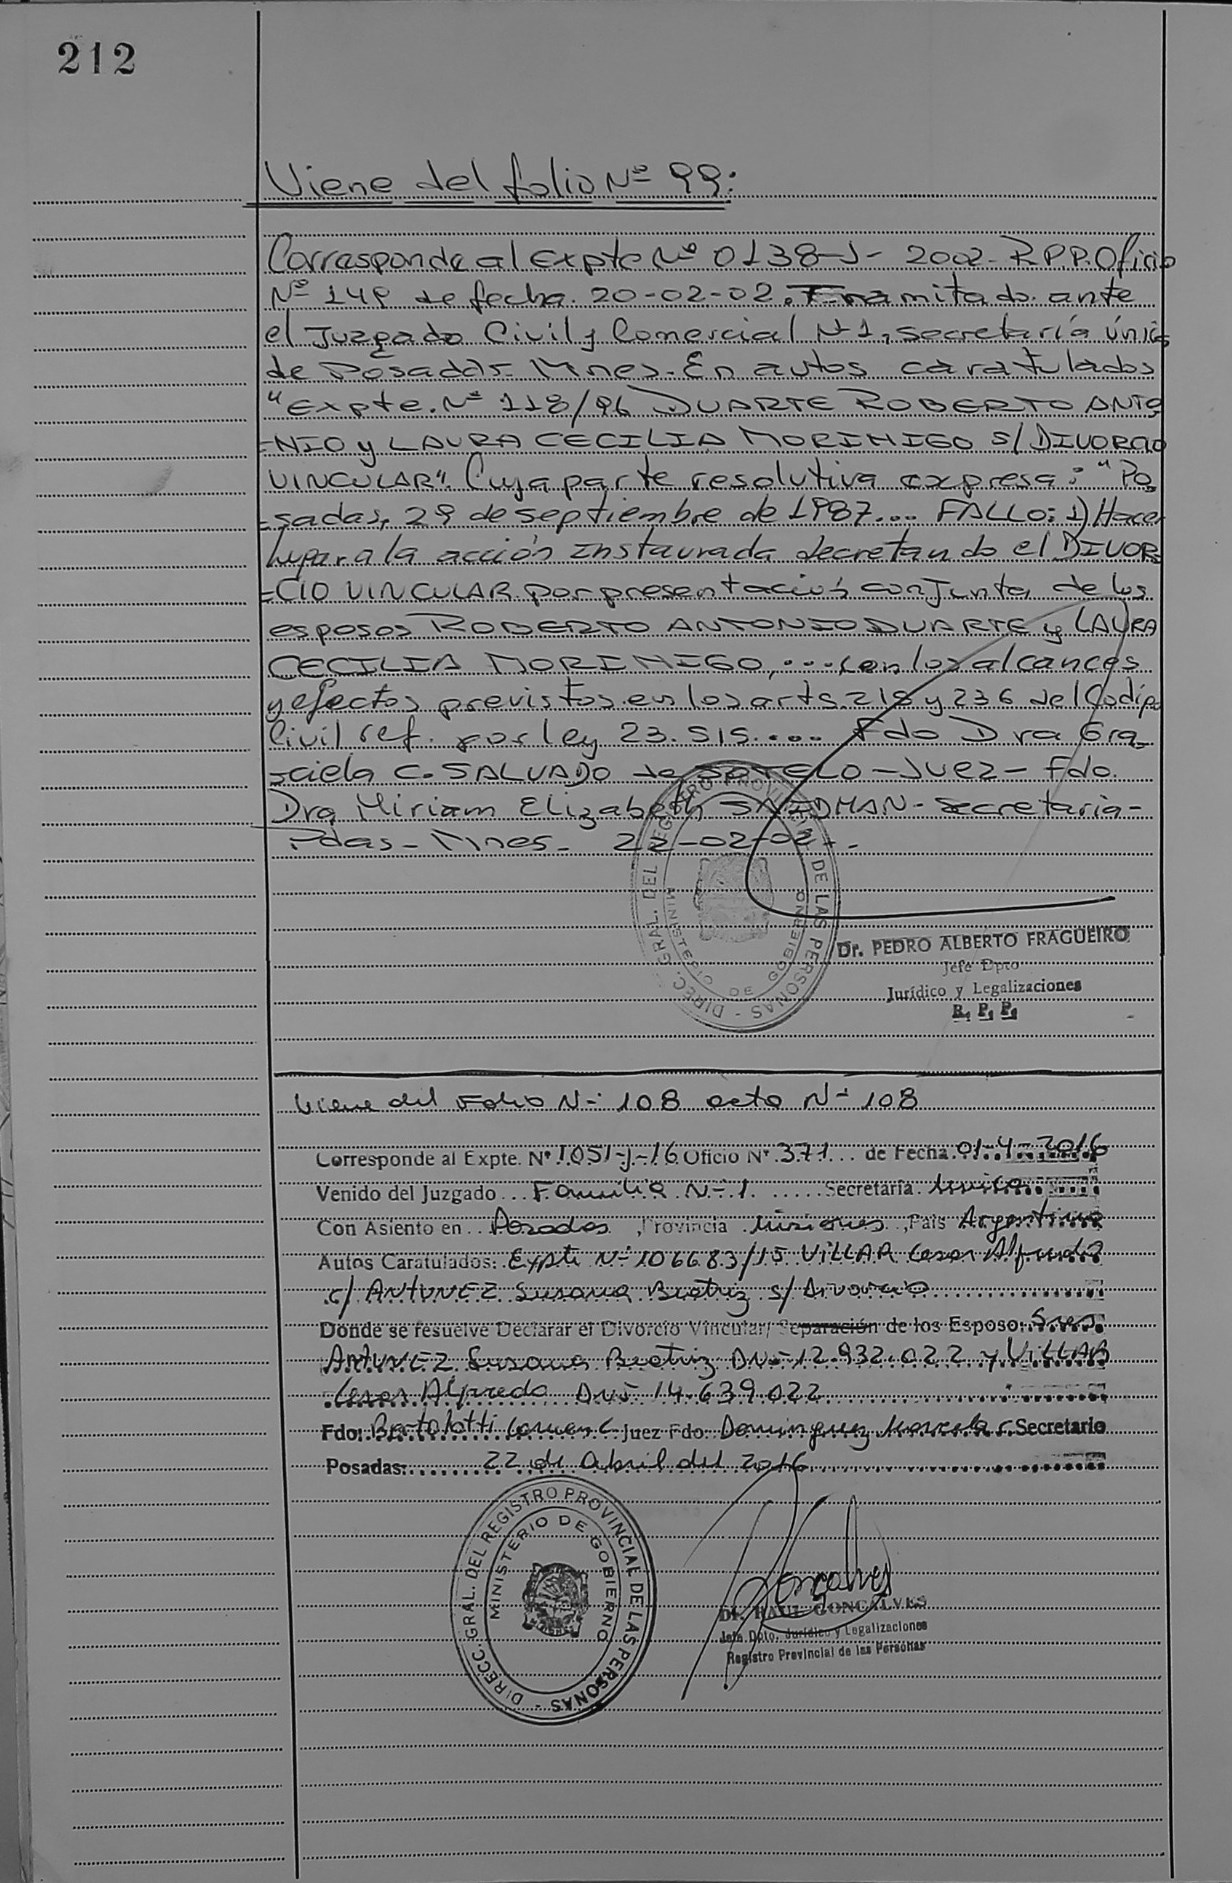 212
Viene del folio Nº 99:
Corresponde al Expte Nº 0138-J- 2002- R.P.P. Oficio
Nº 149 de fecha 20-02-02. Tramitado ante
el Juzgado Civil y Comercial Nº 1, secretaría única
de Posadas- Mnes- En autos caratulados
"Expte. Nº 118/96 DUARTE ROBERTO ANTO
-NIO y LAURA CECILIA MORINIGO S/ DIVORCIO
VINCULAR". Cuya parte resolutiva expresa: "Po
-sadas, 29 de septiembre de 1987... FALLO: 1) Hacer
lugar a la acción instaurada decretando el DIVOR
-CIO VINCULAR por presentación conjunta de los
esposos ROBERTO ANTONIO DUARTE y LAURA
CECILIA MORINIGO, ... con los alcances
y efectos previstos en los arts. 218 y 236 del Codigo
Civil ref. por ley 23.515.... Fdo Dra Gra_
-ciela C. SALVADO de SOTELO - Juez - Fdo.
Dra Miriam Elizabeth SNIDMAN - Secretaria -
Pdas - Mnes - 22-02-02 -.
DIRECC. GRAL. DEL REGISTRO PROVINCIAL DE LAS PERSONAS -
MINISTERIO DE GOBIERNO
Dr. PEDRO ALBERTO FRAGUEIRO
Jefe Dpto
Jurídico y Legalizaciones
R. P. P.
Viene del Folio Nº 108 acta Nº 108
Corresponde al Expte. Nº 1051-J-16 Oficio Nº 371... de Fecha 01-4-2016
Venido del Juzgado... Familia Nº 1 ..... Secretaría Unica
Con Asiento en.. Posadas ,Provincia Misiones ,País Argentina
Autos Caratulados: Expte Nº 106683/15 VILLAR Cesar Alfredo
c/ ANTUNEZ Susana Beatriz s/ Divorcio
Donde se resuelve Declarar el Divorcio Vincular/ Separación de los Esposo: Sres.
ANTUNEZ Susana Beatriz DNI 12.932.022 y VILLAR
Cesar Alfredo DNI 14.639.022
Fdo: Bertolotti Carmen C. Juez Fdo: Dominguez Marcela C. Secretario
Posadas:........ 22 de Abril del 2016
DIRECC. GRAL. DEL REGISTRO PROVINCIAL DE LAS PERSONAS -
MINISTERIO DE GOBIERNO
Gonçalves
Dr. RAUL GONÇALVES
Jefe Dpto. Jurídico y Legalizaciones
Registro Provincial de las Personas